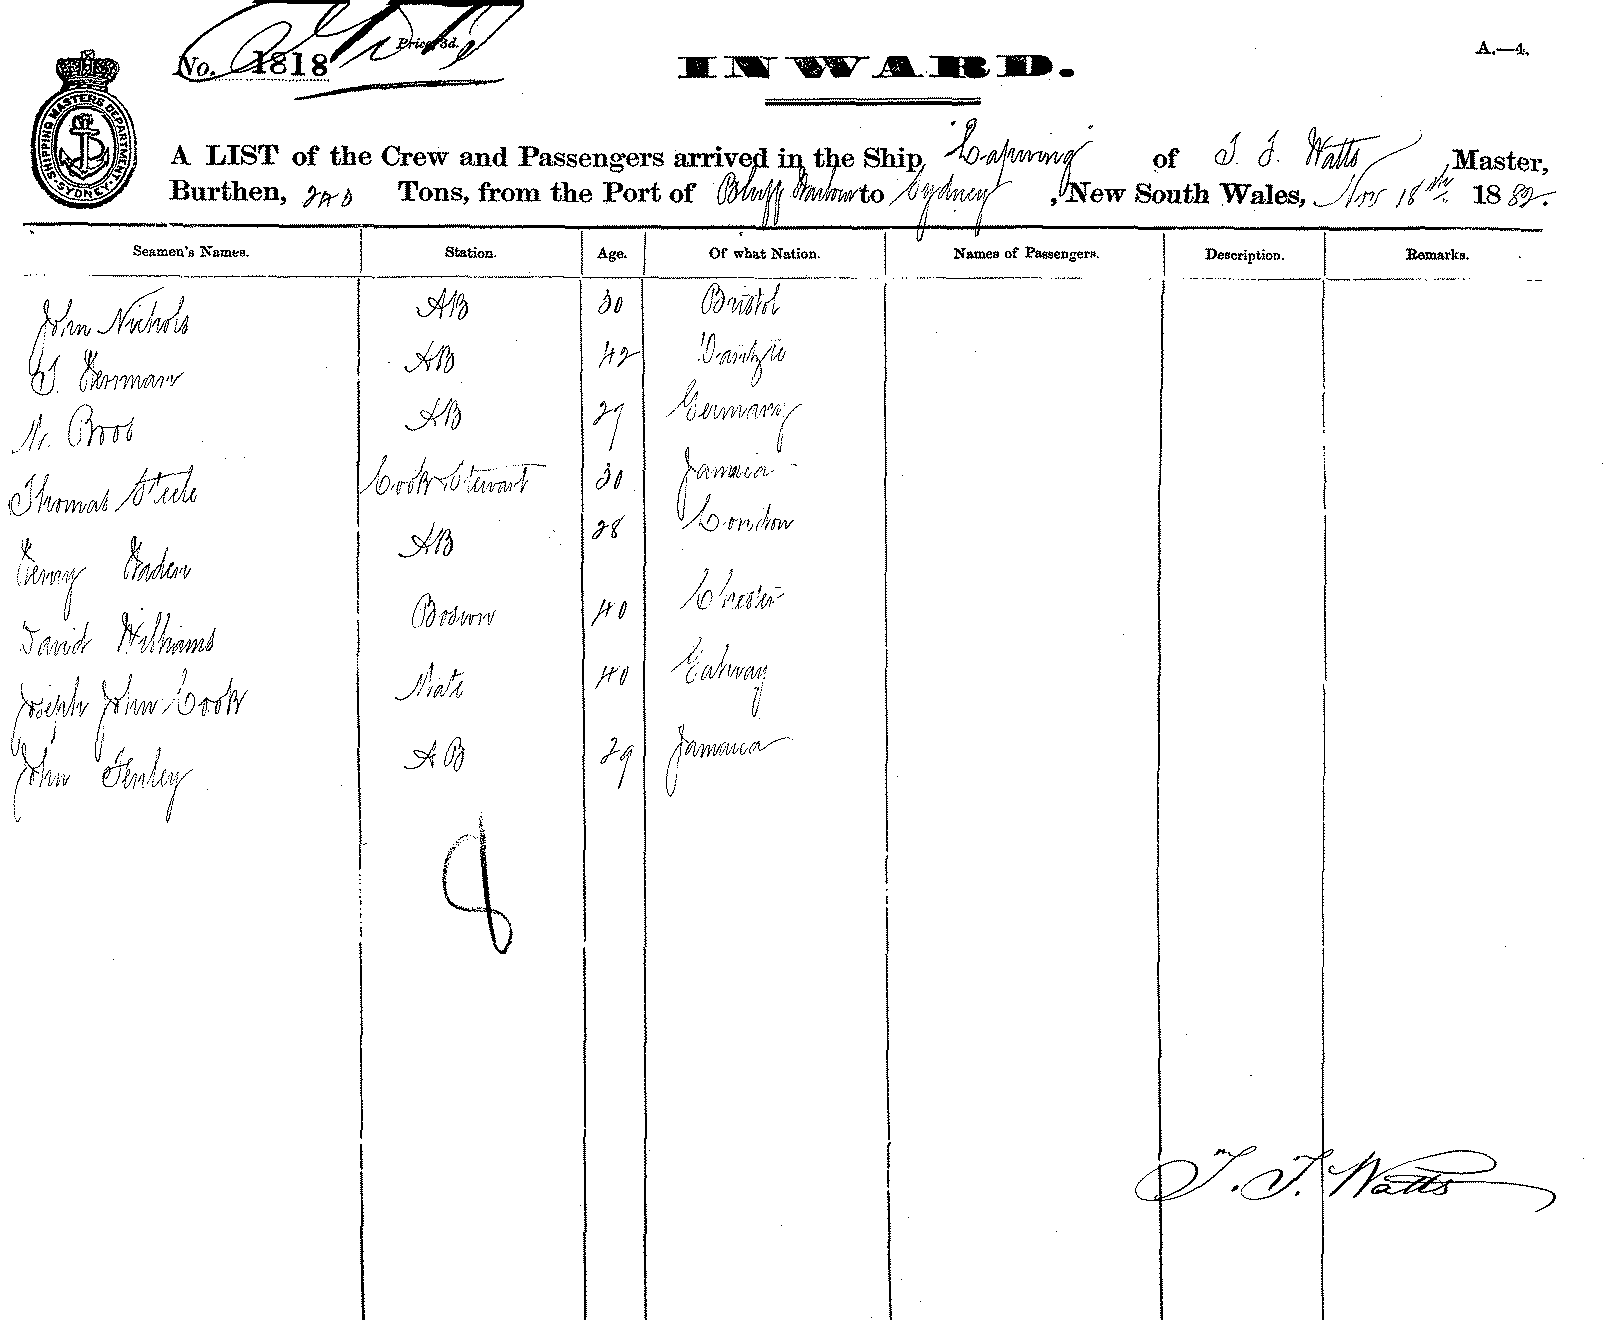 No. 1818 Price 3d.
A.—4.
INWARD.
SHIPPING MASTERS DEPARTMENT SYDNEY
A LIST of the Crew and Passengers arrived in the Ship "Lapwing" of T. T. Watts Master,
Burthen, Tons, from the Port of Bluff Harbour to Sydney, New South Wales, Nov 18th 1882.
Seamen's Names. Station. Age. Of what Nation. Names of Passengers. Description. Remarks.
John Nichols AB 30 Bristol
Herman AB 42 Dantzic
AB 29 Germany
Thomas Steele Cook Stewart 30 Jamaica
Henry Haden AB 28 London
David Williams Boswn 40 Chester
Joseph John Cook Mate 40 Galway
John AB 29 Jamaica
8
T. T. Watts